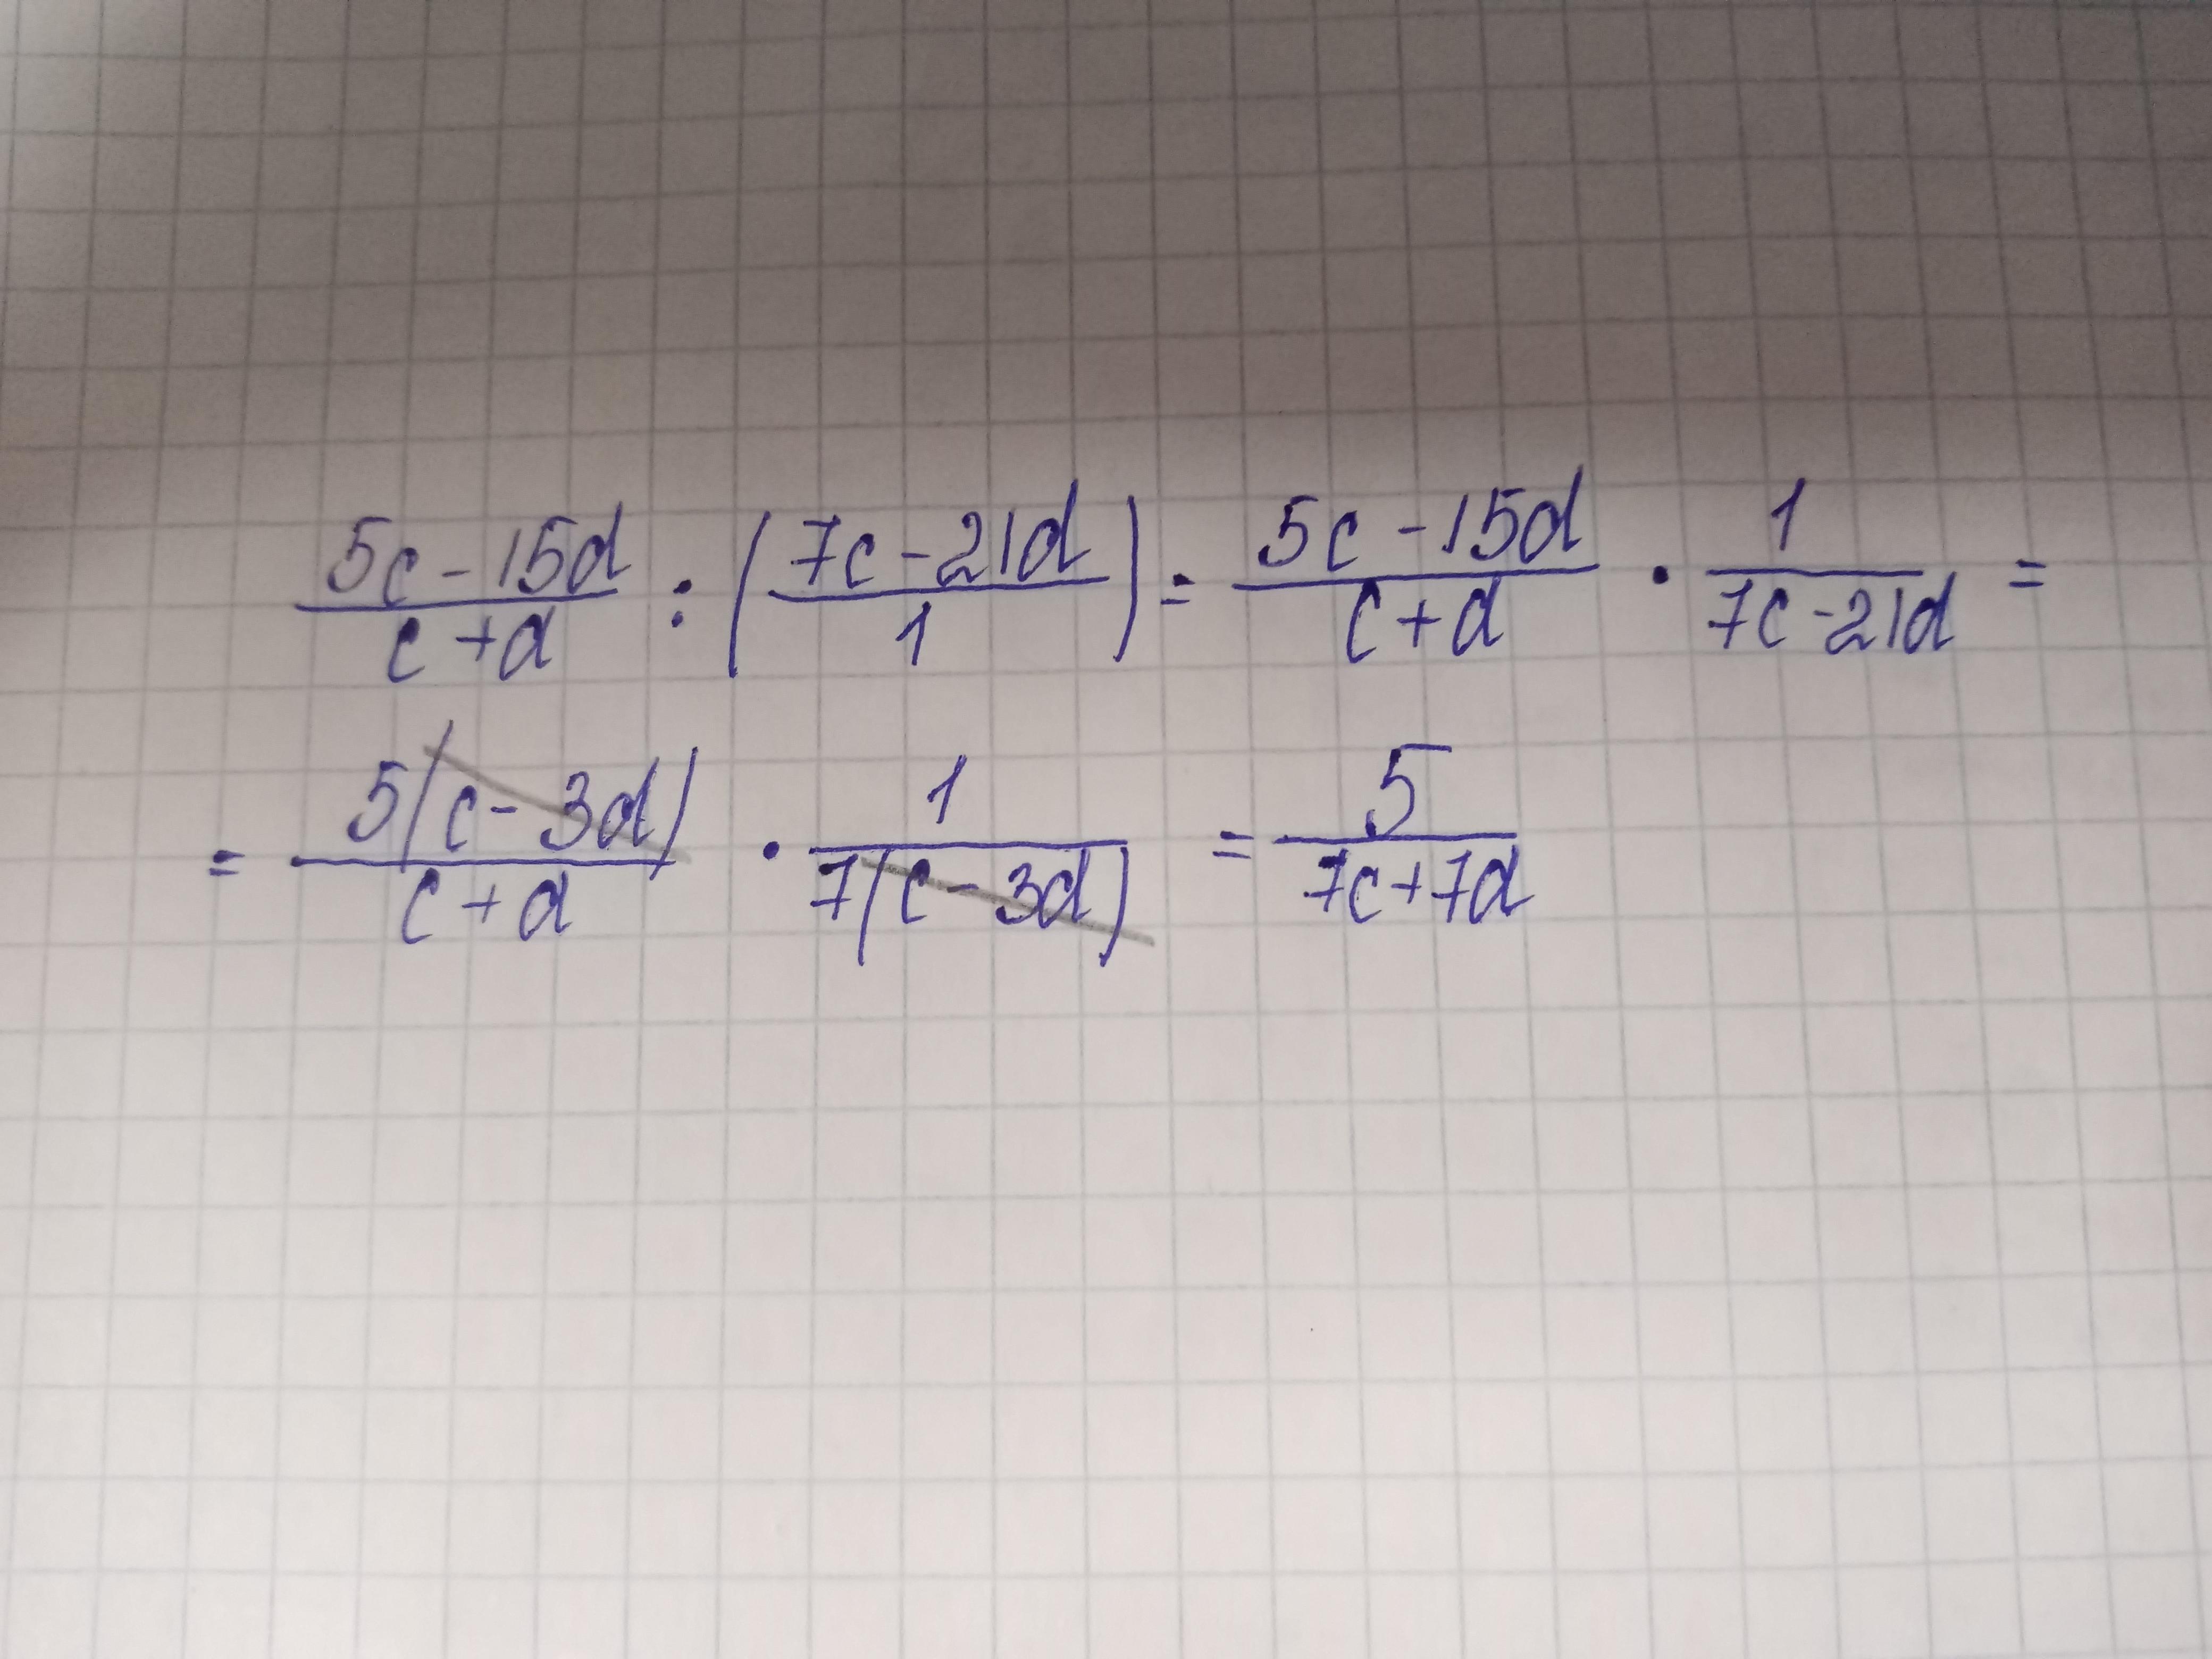 (5c - 15d)/(c + d) : ((7c - 21d)/1) = (5c - 15d)/(c + d) · 1/(7c - 21d) =
= 5(c - 3d)/(c + d) · 1/(7(c - 3d)) = 5/(7c + 7d)